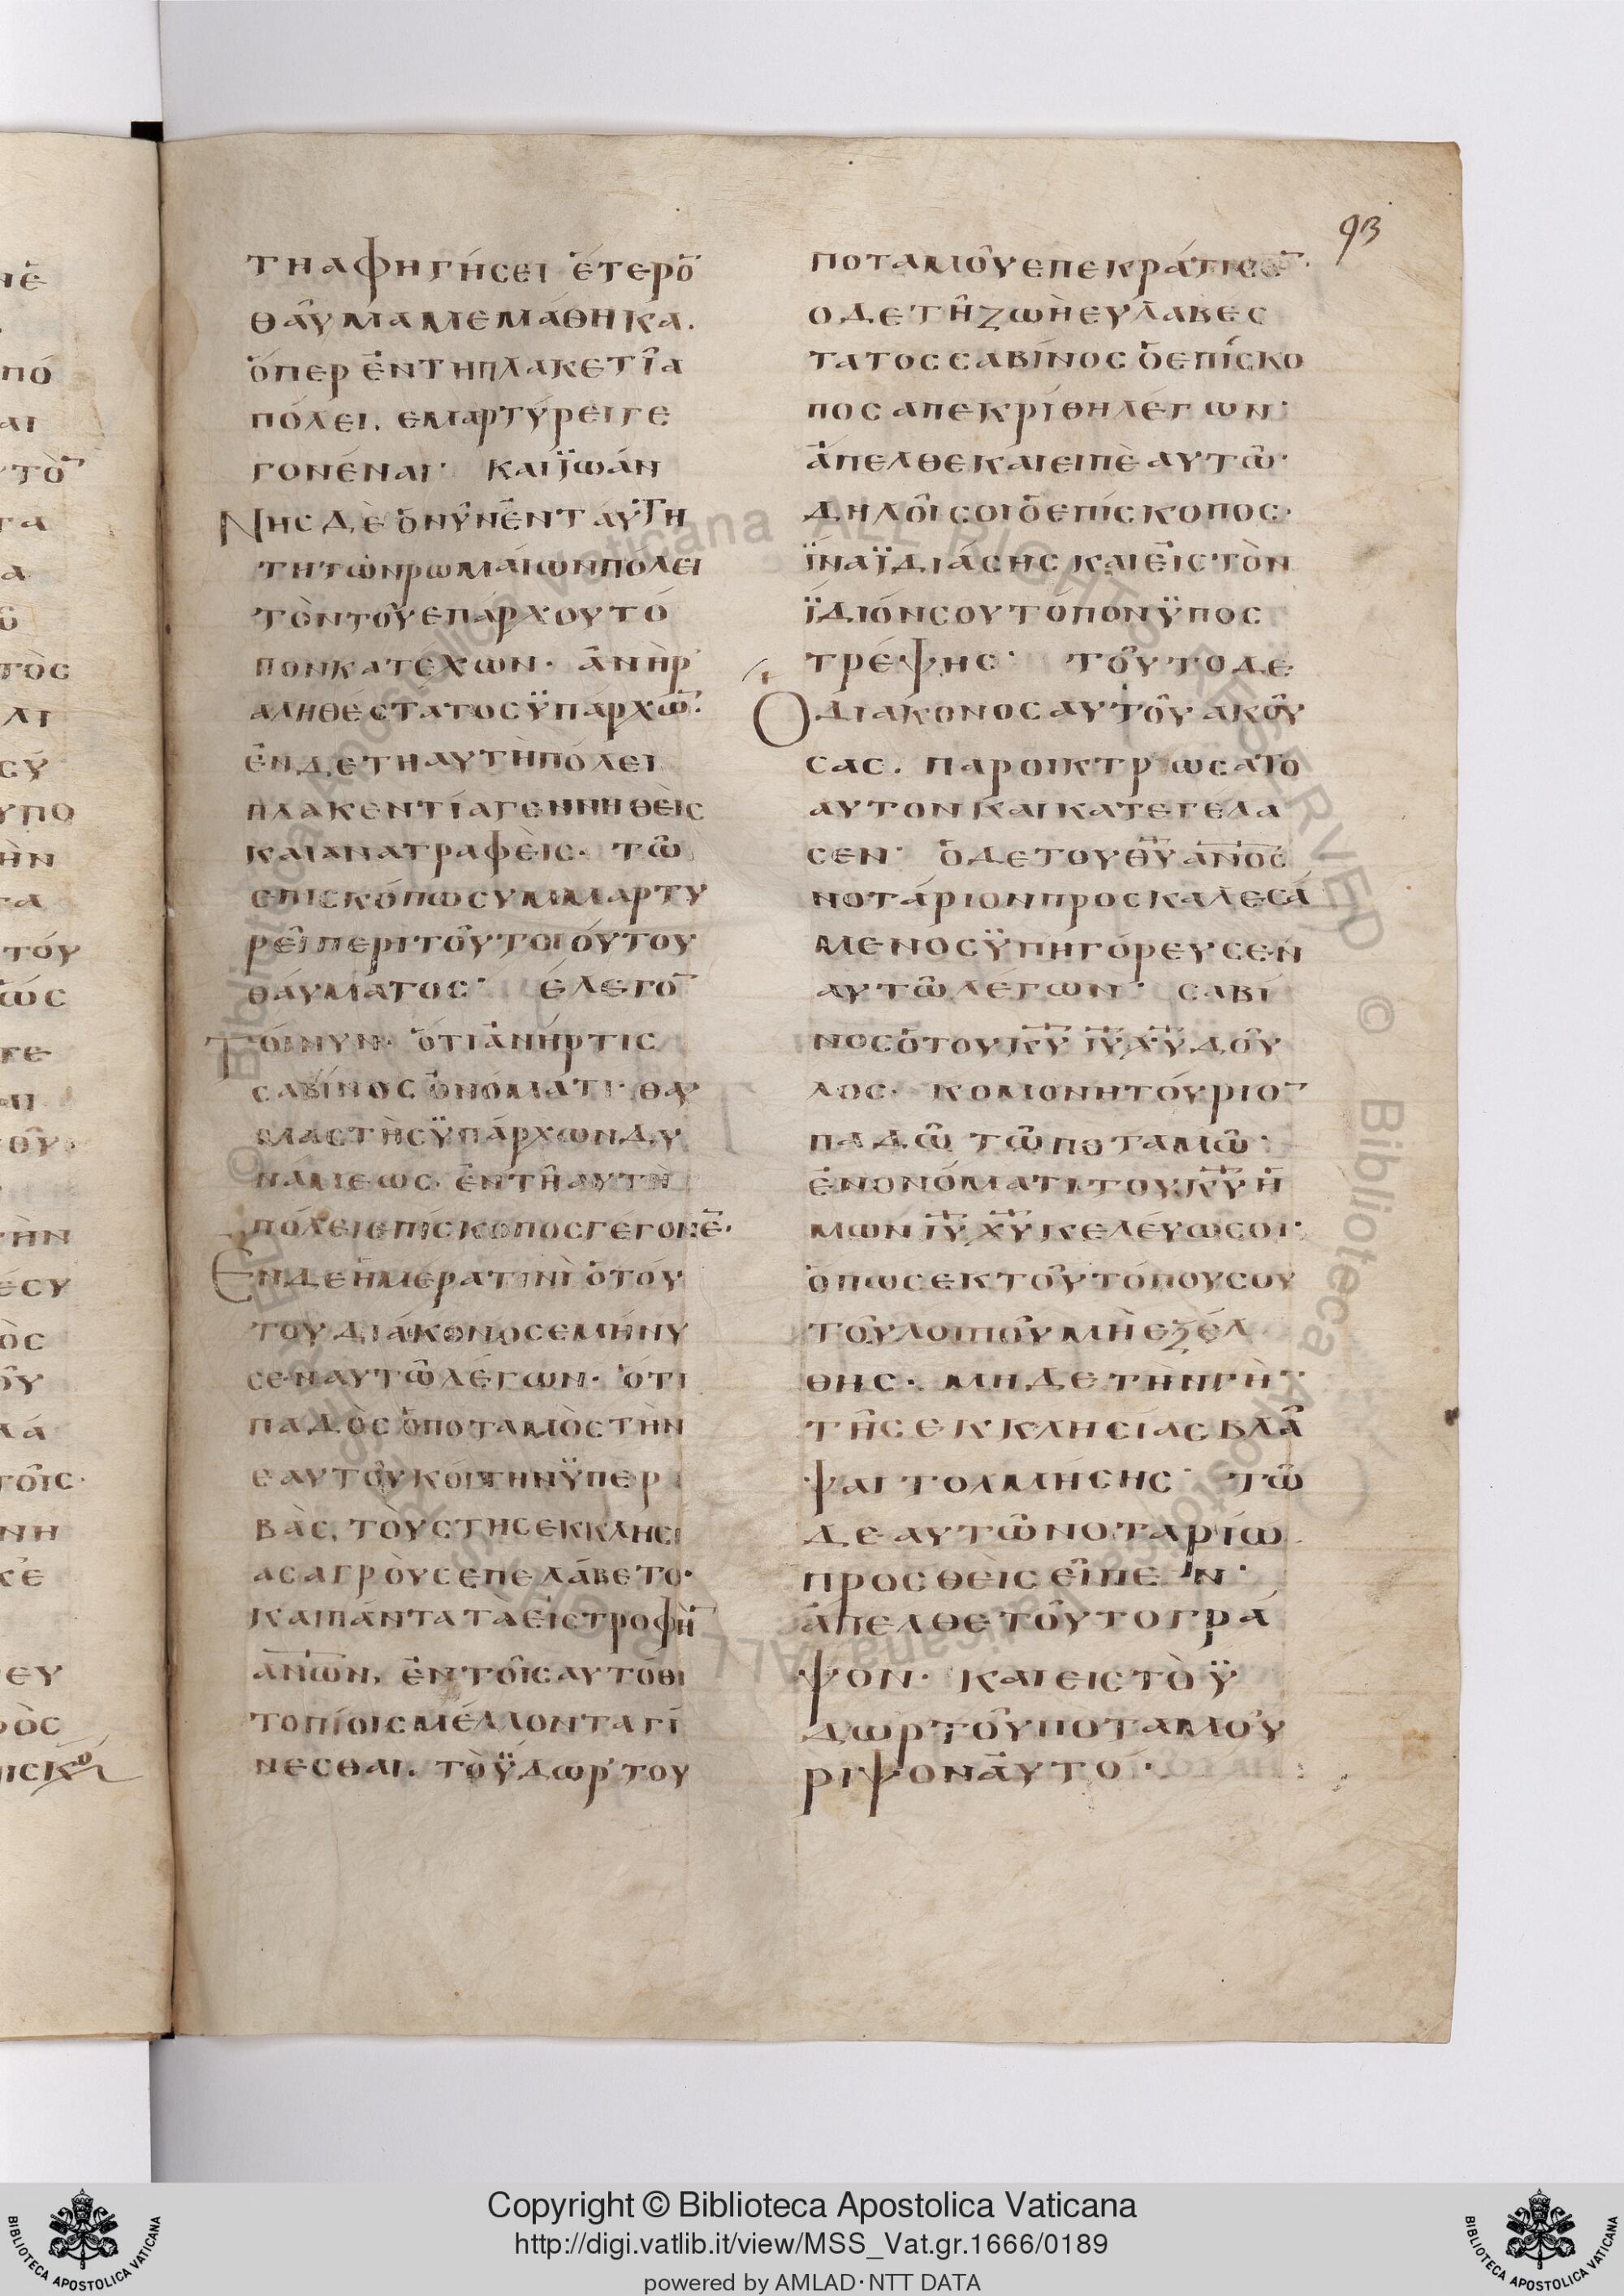 93
τη αφηγήσει ἑτερο̅
θαῦμα μεμάθηκα.
ὅπερ ἐν τη πλακετῖα
πόλει. εμαρτύρει γε
γονέναι· και ϊωάν
Νης δὲ ὁ νῦν ἐν ταύτη
τη τῶν ρωμαίων πόλει
τὸν τοῦ επάρχου τό
πον κατεχων· ἀνὴρ
αληθέστατος ϋπάρχω̅·
ἐν δε τη αυτὴ πόλει
πλακεντία γεννηθεὶς
και ανατραφεὶς· τῶ
επισκόπω συμμαρτυ
ρεῖ περι τοῦ τοιούτου
θαύματος· έλεγο̅
Τοίνυν· ὅτι ἀνήρ τις
σαβίνος ὀνόματι· θαυ
μαστὴς ϋπάρχων δυ
νάμεως· ἐν τῆ αυτὴ
πόλει επίσκοπος γέγονε̅·
Εν δε ἡμερα τινὶ ὁ τού
του διάκονος εμήνυ
σεν αυτῶ λέγων· ὅτι
παδὸς ὁ ποταμὸς τὴν
εαυτοῦ κοίτην ϋπερ
βὰς, τοὺς της εκκλησι
ας αγροὺς επελάβετο·
και πάντα τὰ εἰς τροφὴ̅
ἀν̅ω̅ν, ἐν τοῖς αυτόθι
τοπίοις μέλλοντα γί
νεσθαι. τὸ ϋδωρ του
ποταμοῦ επεκράτησε̅·
ο δε τῆ ζωῆ ευλαβεσ
τατος σαβίνος ὁ επίσκο
πος απεκρίθη λέγων·
ἄπελθε και ειπὲ αυτῶ·
Δηλοῖ σοι ὁ επίσκοπος·
ϊνα ϊδιάσης και εἰς τὸν
ϊδιόν σου τόπον ϋποσ
τρέψης· τοῦτο δε
Ο διάκονος αυτοῦ ακοῦ
σας. παροικτρϊωσατο
αυτον και κατεγέλα
σεν· ὁ δε του θ̅υ̅ α̅ν̅ο̅ς̅
νοτάριον προσκαλεσά
μενος ϋπηγόρευσεν
αυτῶ λέγων· σαβί
νος ὁ του κ̅υ̅ ι̅υ̅ χ̅υ̅ δοῦ
λος· κομονητόυριο̅
παδῶ τῶ ποταμῶ·
ἐν ονόματι του κ̅υ̅ ἡ
μών ι̅υ̅ χ̅υ̅ κελεύω σοι·
ὁπως εκ τοῦ τόπου σου
τοῦ λοιποῦ μὴ εξέλ
θης· μηδε τὴν γὴ̅
τῆς εκκλησίας βλά
ψαι τολμήσης· τῶ
δε αυτῶ νοταρίω
προσθεὶς εῖπεν·
ἄπελθε τοῦτο γρά
ψον· και εις τὸ ϋ
δωρ τοῦ ποταμοῦ
ριψον ἀυτό·
Copyright © Biblioteca Apostolica Vaticana
http://digi.vatlib.it/view/MSS_Vat.gr.1666/0189
powered by AMLAD·NTT DATA
BIBLIOTECA APOSTOLICA VATICANA
BIBLIOTECA APOSTOLICA VATICANA